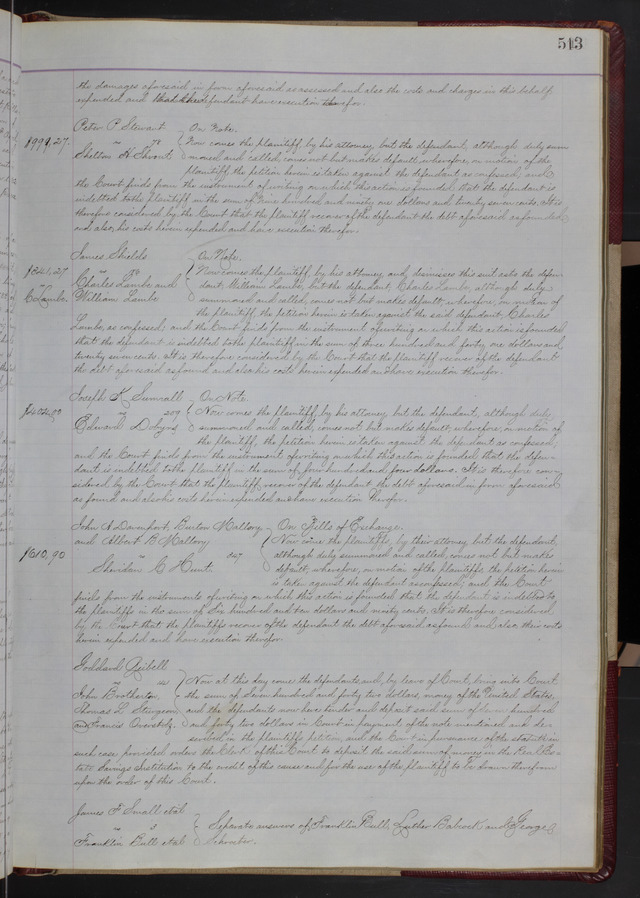 513
the damages aforesaid in form aforesaid as assessed and also the costs and charges in this behalf
expended and that the defendant have execution therefor.
Peter P. Stewart On Note.
1991,27. Now comes the plaintiff, by his attorney, but the defendant, although duly sum
Shelton H moned and called, comes not but makes default, wherefore, on motion of the
plaintiff, the petition herein is taken against the defendant as confessed, and
the Court finds from the instrument of writing on which this action is founded that the defendant is
indebted to the plaintiff in the sum of hundred and ninety one dollars and twenty seven cents. It is
therefore considered by the Court that the plaintiff recover of the defendant the debt aforesaid as found
and also his costs herein expended and have execution therefor.
James Shields On Note.
Now comes the plaintiff, by his attorney, and dismisses this suit as to the defen
C Lambe Charles Lambe and dant William Lambe, but the defendant, Charles Lambe, although duly
William Lambe summoned and called, comes not but makes default, wherefore, on motion of
the plaintiff, the petition herein is taken against the said defendant, Charles
Lambe, as confessed: and the Court finds from the instrument of writing on which this action is founded
that the defendant is indebted to the plaintiff in the sum of three hundred and forty one dollars and
twenty seven cents. It is therefore considered by the Court that the plaintiff recover of the defendant
the debt aforesaid as found and also his costs herein expended and have execution therefor.
Joseph K Sumrall On Note.
209 Now comes the plaintiff, by his attorney but the defendant, although duly
Edward D summoned and called, comes not but makes default, wherefore, on motion of
the plaintiff, the petition herein is taken against the defendant as confessed,
and the Court finds from the instrument of writing on which this action is founded, that the defen-
dant is indebted to the plaintiff in the sum of four hundred four dollars. It is therefore con-
sidered by the Court that the plaintiff recover of the defendant the debt aforesaid in form aforesaid
as found and also his costs herein expended and have execution therefor.
John A Davenport, Burton Mallory On Bills of Exchange.
and Albert B Mallory Now come the plaintiffs, by their attorney but the defendant,
1610,90 247 although duly summoned and called, comes not but makes
Sheridan C Hunt. default, wherefore, on motion of the plaintiffs, the petition herein
is taken against the defendant as confessed; and the Court
finds from the instruments of writing on which this action is founded that the defendant is indebted to
the plaintiffs in the sum of Six hundred and ten dollars and ninety cents. It is therefore considered
by the Court that the plaintiffs recover of the defendant the debt aforesaid as found and also their costs
herein expended and have execution therefor.
Goddard
Now at this day come the defendants, and, by leave of Court, bring into Court
John Brotherton, the sum of hundred and forty two dollars, money of the United States,
Thomas L. Sturgeon and the defendants now here tender and deposit said sum of hundred
and Francis Overstolz. and forty two dollars in Court in payment of the note mentioned and de-
scribed in the plaintiffs petition, and the Court in pursuance of the statute in
such case provided orders the Clerk of this Court to deposit the said sum of money in the Real Es-
tate Savings Institution to the credit of this cause and for the use of the plaintiff to be drawn therefrom
upon the order of this Court.
James F. Small et al
Separate answers of Franklin Bull, Luther Babcock and George
Franklin Bull et al Schreiber.